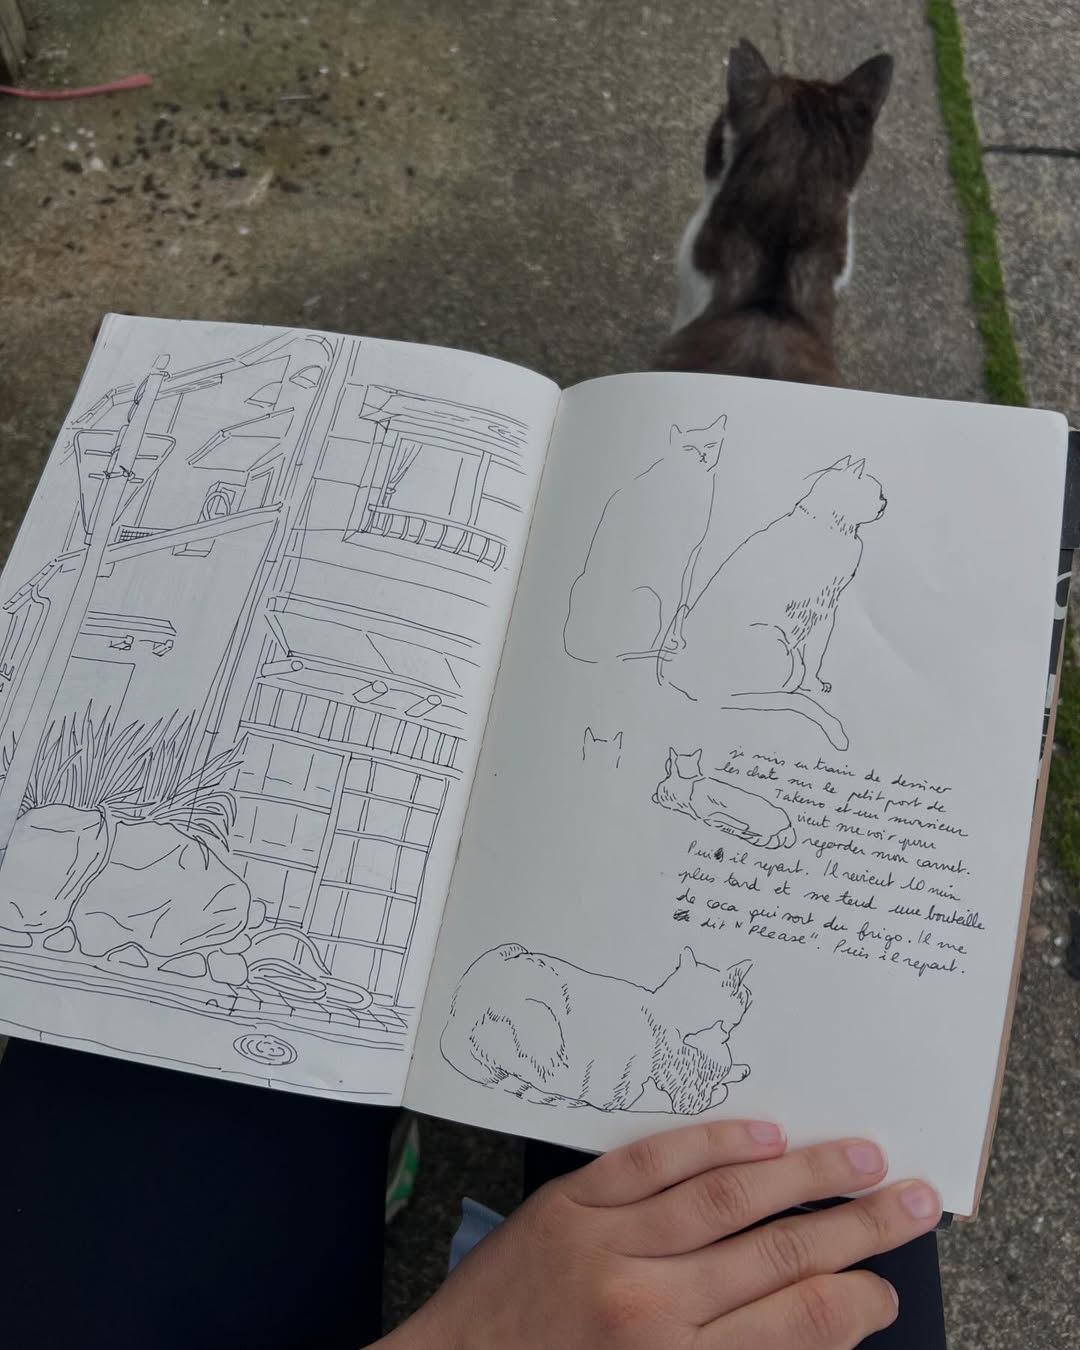 je suis en train de dessiner
les chat sur le petit port de
Takeno et un monsieur
vient me voir pour
regarder mon carnet.
Puis il repart. Il revient 10 min
plus tard et me tend une bouteille
de coca qui sort du frigo. Il me
dit "Please". Puis il repart.